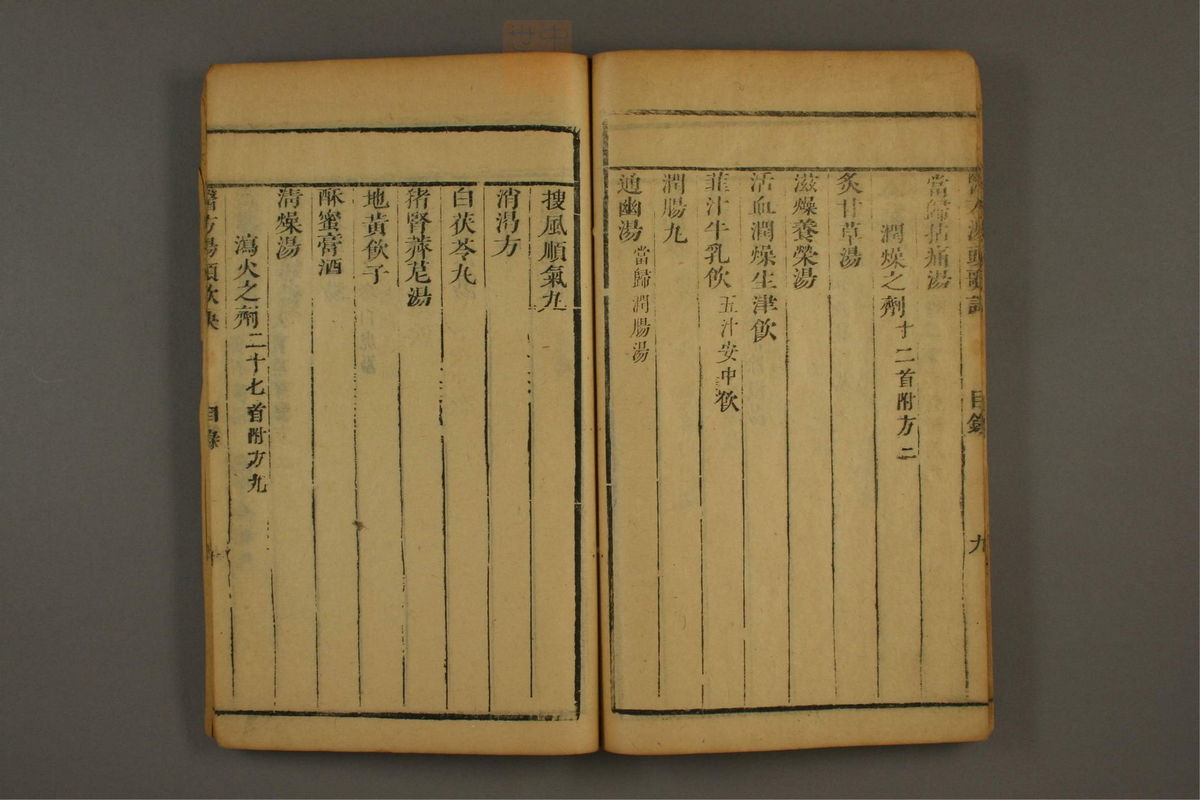 湯頭歌訣 目錄 九
當歸拈痛湯
潤燥之劑 十二首附方二
炙甘草湯
滋燥養榮湯
活血潤燥生津飲
韭汁牛乳飲 五汁安中飲
潤腸丸
通幽湯 當歸潤腸湯
搜風順氣丸
消渴方
白茯苓丸
猪腎薺苨湯
地黃飲子
酥蜜膏酒
清燥湯
瀉火之劑 二十七首附方九
醫方湯頭歌訣 目錄